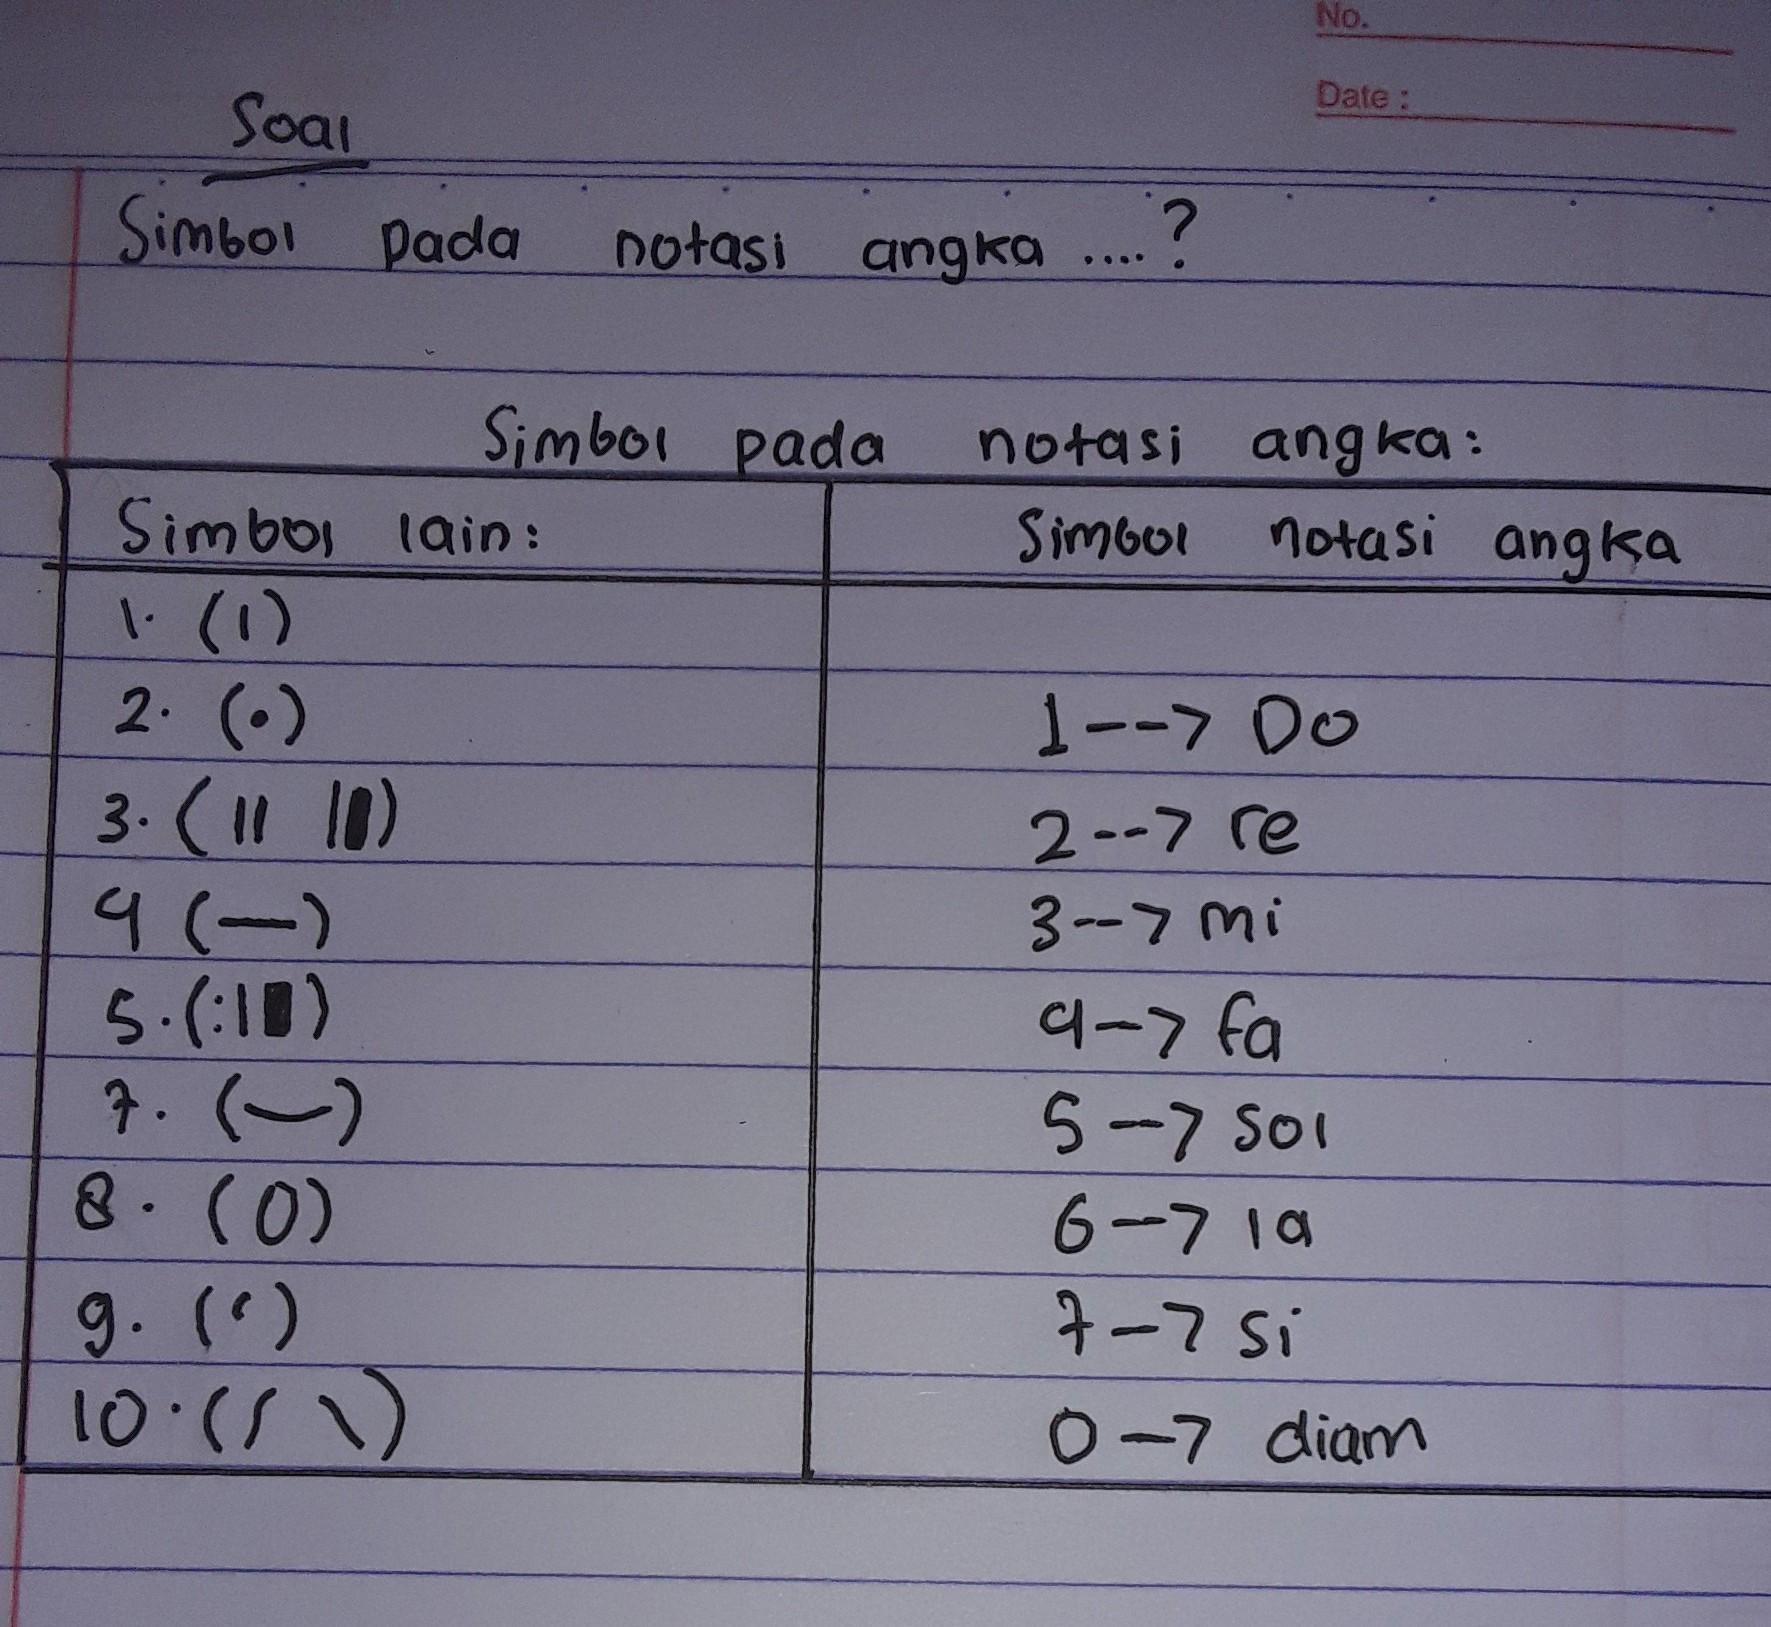 No.
Date :
Soal
Simbol pada notasi angka ....?
Simbol pada notasi angka:
Simbol lain:
1. (I)
2. (•)
3. (|| |▮)
4 (—)
5. (:|▮)
7. (‿)
8. (0)
9. (‘)
10. (/ \)
Simbol notasi angka
1 --> Do
2 --> re
3 --> mi
4 —> fa
5 —> sol
6 —> la
7 —> si
0 —> diam